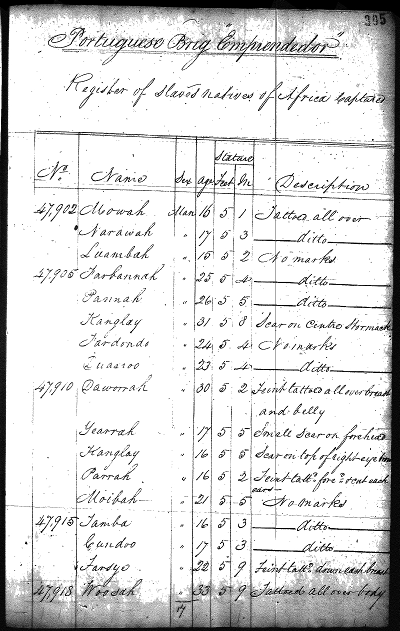 395
Portuguese Brig "Emprendedor"
Register of Slaves natives of Africa Captured
Stature
No. Name Sex Age Feet In Description
47,902 Mowah Man 16 5 1 Tattoed all over
Narawah " 17 5 3 ditto
Luambah " 15 5 2 No marks
47,905 Farbannah " 25 5 4 ditto
Pannah " 26 5 5 ditto
Kanglay " 31 5 8 Scar on Centre Stormach
Fardondo " 24 5 4 No marks
Quasroo " 23 5 4 ditto
47,910 Daworrah " 30 5 2 Feint tattoed all over breast
and belly
Yearrah " 17 5 5 Small Scar on forehead
Kanglay " 16 5 5 Scar on top of right eye brow
Parrah " 16 5 2 Feint tattd. fore rent each
ears
Moibah " 21 5 5 No marks
47,915 Tamba " 16 5 3 ditto
Cundoo " 17 5 3 ditto
Farsye " 22 5 9 Feint tattd. down each breast
47,918 Woosah " 33 5 9 Tattoed all over body
17